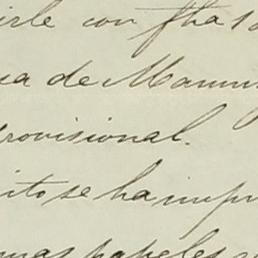 irle con fha 1
a de Manu
rovisional.
ito se ha impr
mas papeles